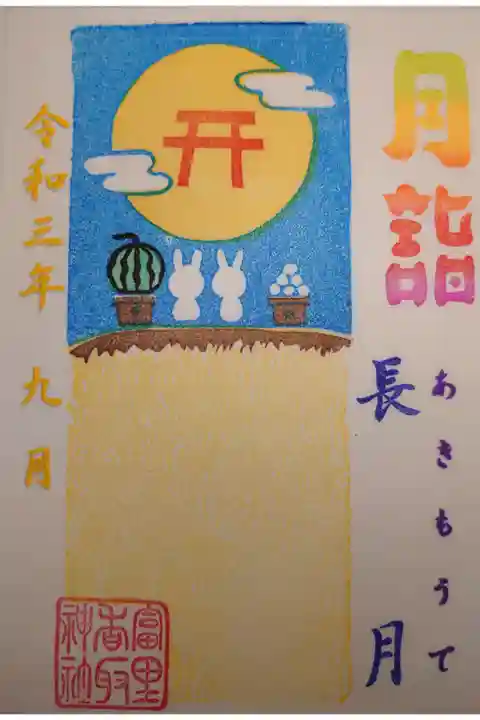 月詣
あきもうて
長月
令和三年 九月
富里
香取
神社